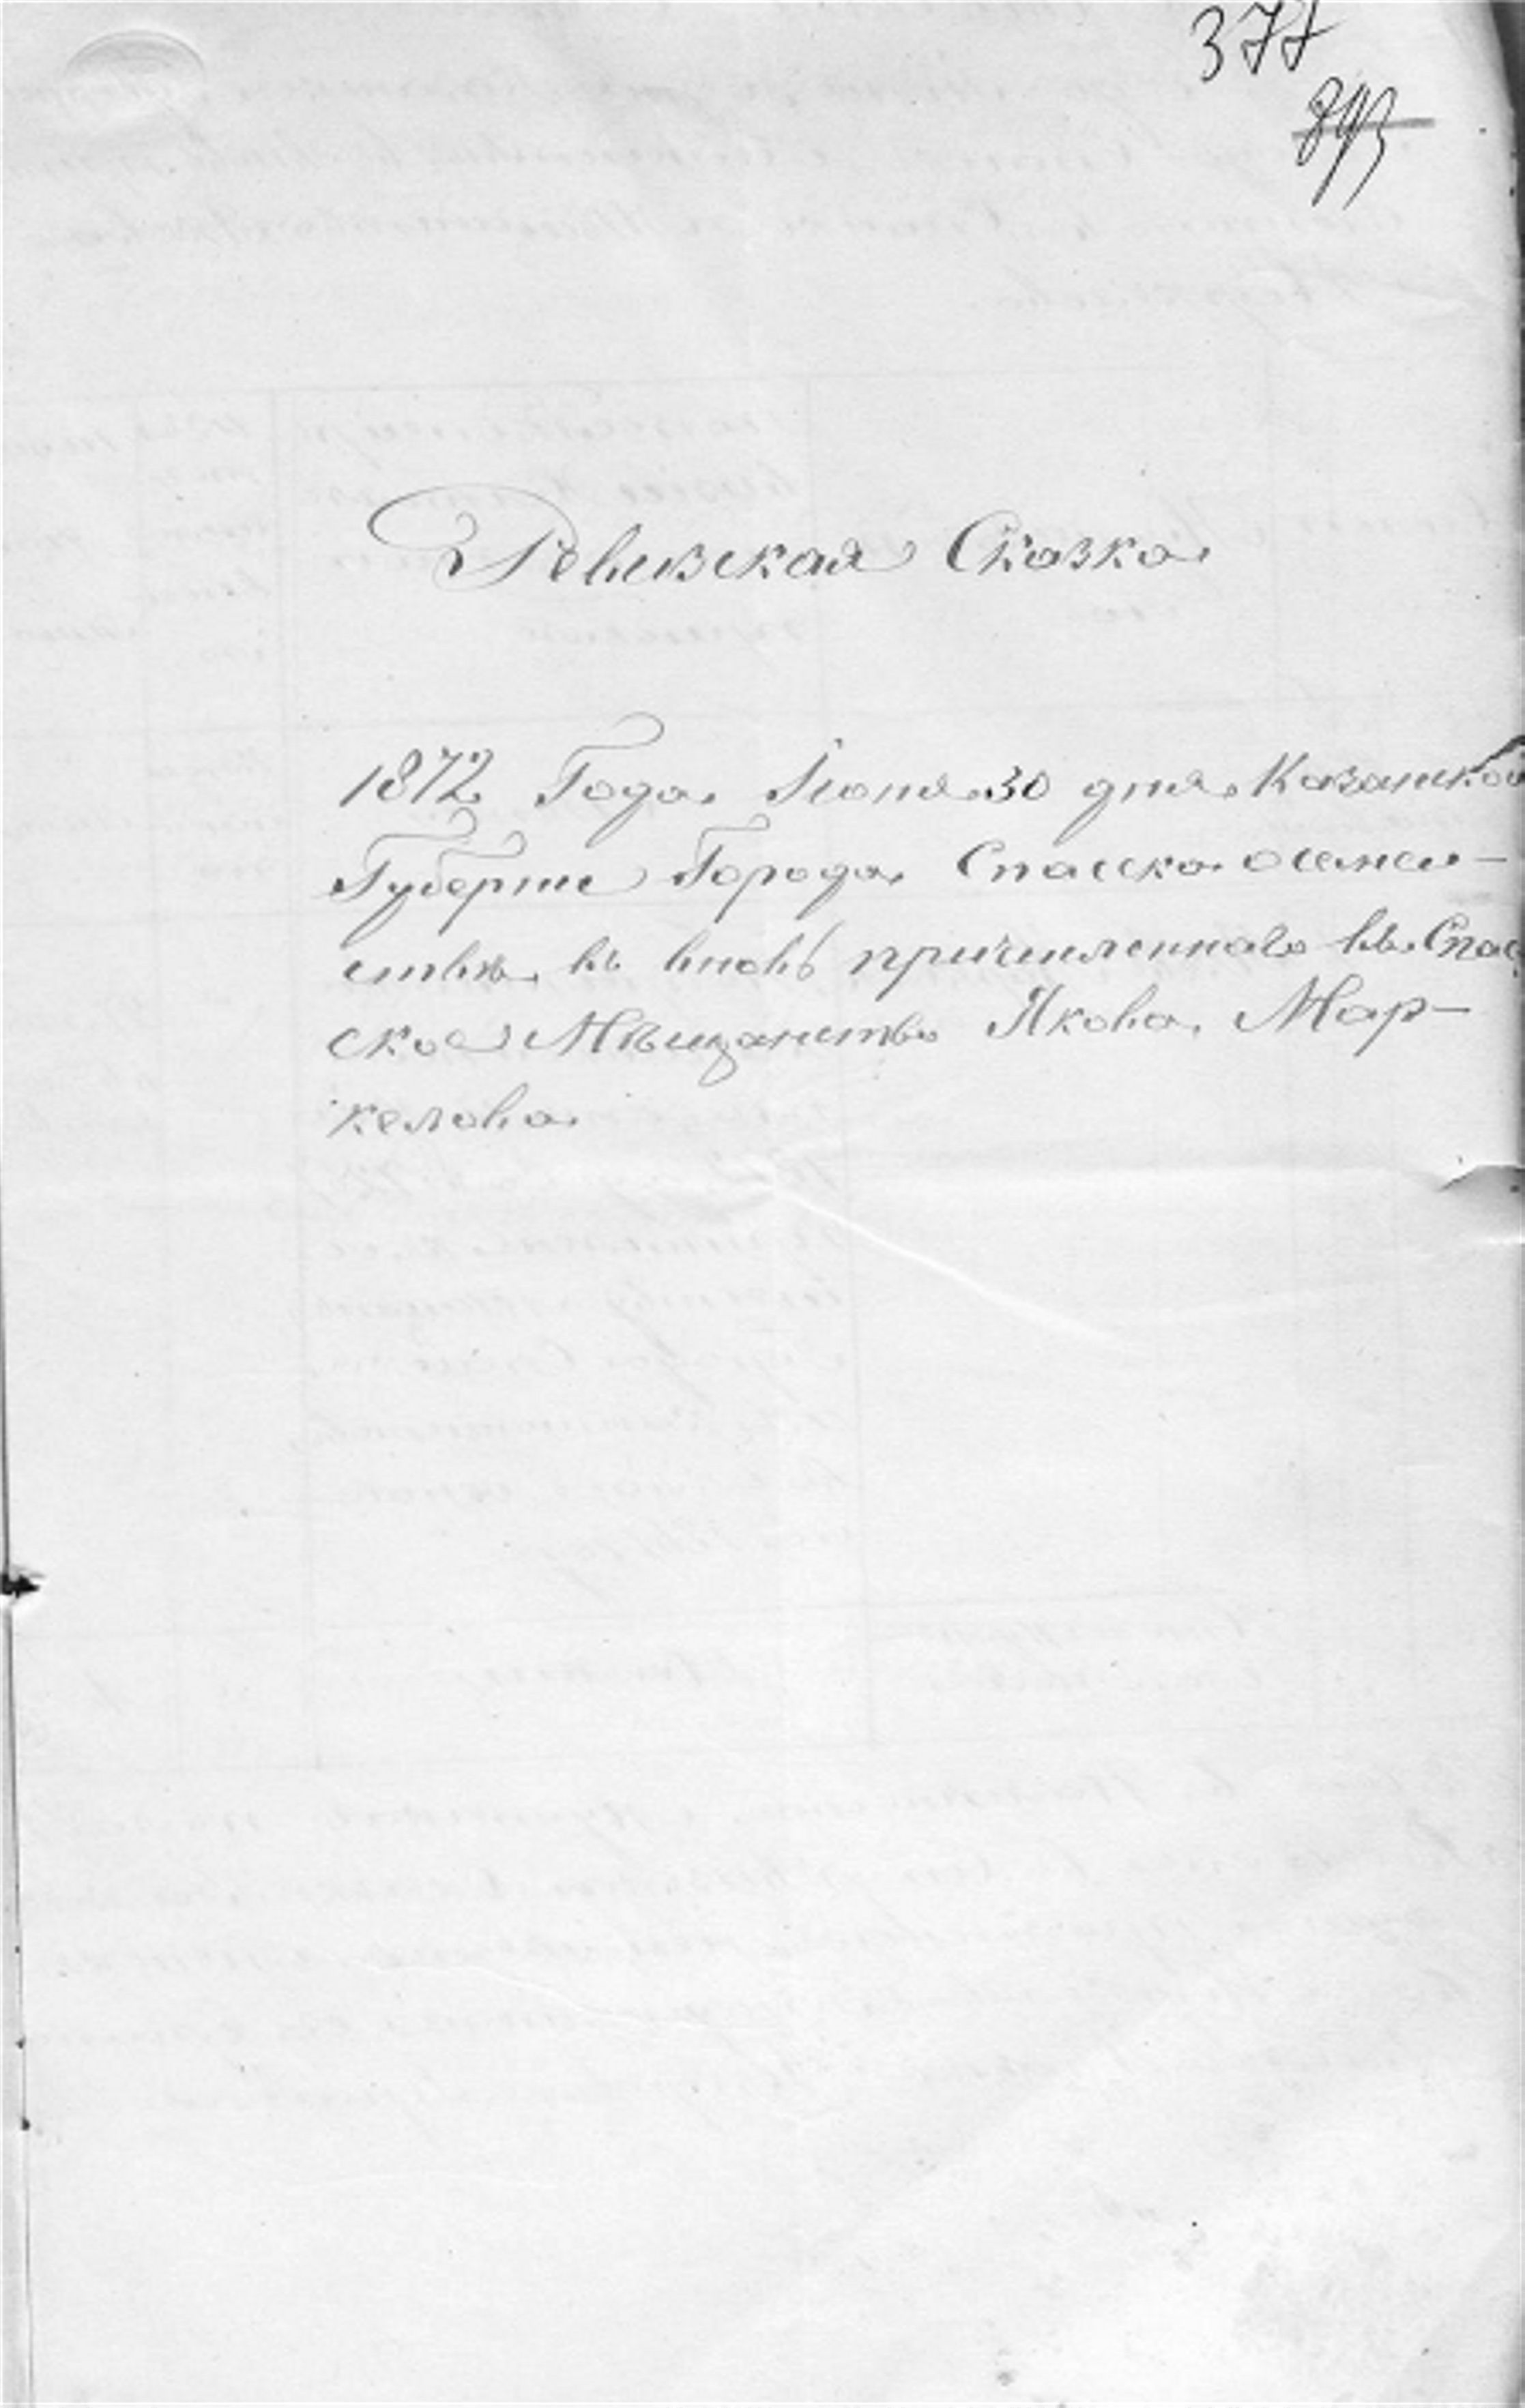 377
893
Ревизская Сказка
1872 Года Июня 30 дня Казанской
Губернии Города Спасска о семей-
ствѣ въ вновь причисленнаго въ Спас
ское Мѣщанство Якова Мар-
келова